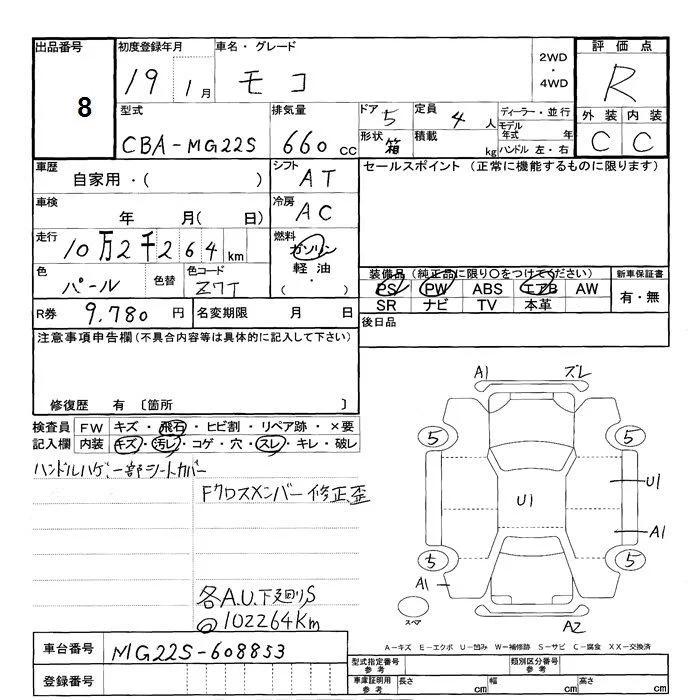 出品番号 初度登録年月 車名・グレード 評価点
8 19 1月 モコ 2WD・4WD R
型式 排気量 ドア 5 定員 4人 ディーラー・並行 外装 内装
CBA-MG22S 660cc 形状 箱 積載 kg モデル年式 年 C C
ハンドル 左・右
車歴 自家用・( ) シフト AT セールスポイント (正常に機能するものに限ります)
車検 年 月( 日) 冷房 AC
走行 10万2千264km 燃料 ガソリン
軽油
・( )
色 パール 色替 色コード Z7T 装備品(純正品に限り○をつけてください) 新車保証書
PS PW ABS エアB AW 有・無
R券 9,780円 名変期限 月 日 SR ナビ TV 本革
注意事項申告欄(不具合内容等は具体的に記入して下さい) 後日品
修復歴 有 〔箇所 〕
検査員 FW キズ・飛石・ヒビ割・リペア跡・×要
記入欄 内装 キズ・汚レ・コゲ・穴・スレ・キレ・破レ
ハンドルハゲ、一部シートカバー
Fクロスメンバー修正歪
各A.U.下廻りS
◎102264Km
A1 ズレ
5 5
U1 U1
A1
5 5
A1
スペア A2
A-キズ E-エクボ U-凹み W-補修跡 S-サビ C-腐食 XX-交換済
車台番号 MG22S-608853
登録番号
型式指定番号 参考 類別区分番号 参考
車庫証明用 参考 長さ cm 幅 cm 高さ cm